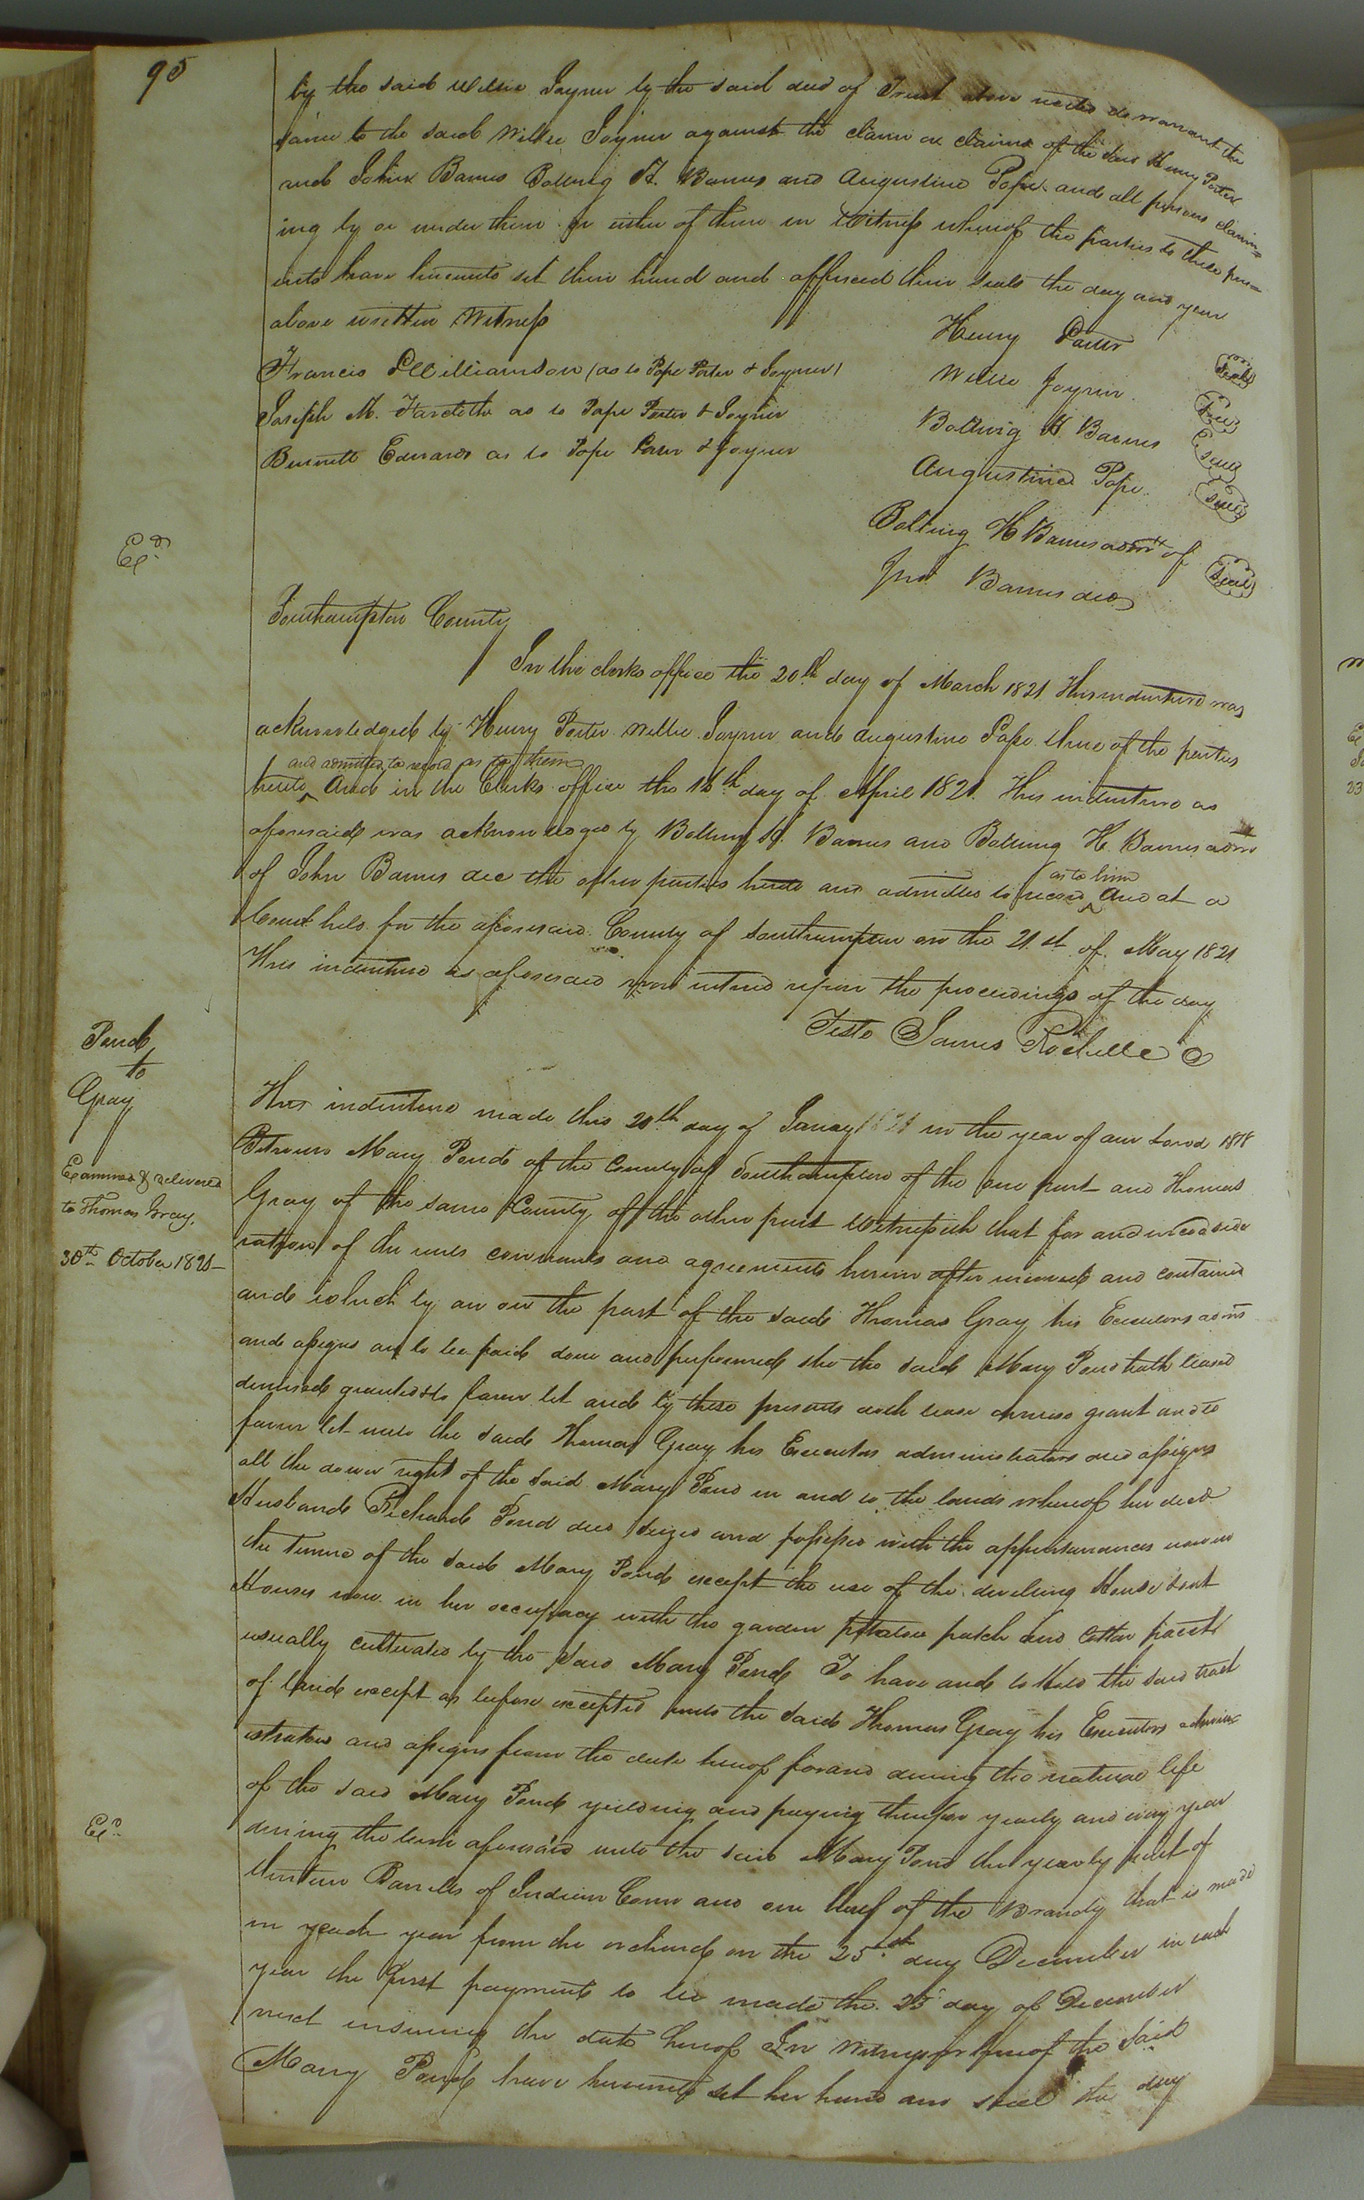 95
by the said Willie Joyner by the said deed of Trust above recited do warrant the
same to the said Willie Joyner against the claim or claims of the said Henry Porter
and John Barnes Bolling H. Barnes and Augustine Pope and all persons claim=
ing by or under them or either of them in Witness whereof the parties to these pres=
ents have hereunto set their hand and affixed their seals the day and year
above written Witness
Henry Porter seal
Francis Williamson (as to Pope Porter & Joyner)
Willie Joyner seal
Joseph M. as to Pope Porter & Joyner
Bolling H Barnes seal
Bennett Edwards as to Pope Porter & Joyner
Augustine Pope seal
Bolling H Barnes admr of
Jno Barnes decd seal
Exd
Southampton County
In the clerks office the 20th day of March 1821 This indenture was
acknowledged by Henry Porter Willie Joyner and Augustine Pope three of the parties
and admitted to record as to them
hereto And in the Clerks office the 16th day of April 1821. This indenture as
aforesaid was acknowledged by Bolling H. Barnes and Bolling H. Barnes admr
of John Barnes dec the other parties hereto and admitted to record as to him And at a
Court held for the aforesaid County of Southampton on the 21st of May 1821
This indenture as aforesaid was entered upon the proceedings of the day
Teste James Rochelle C
Pond
to
Gray
Examined & delivered
to Thomas Gray.
30th October 1821
This indenture made this 20th day of Janay 1821 in the year of our Lord 1818
Between Mary Pond of the County of Southampton of the one part and Thomas
Gray of the same County of the other part Witnesseth that for and in conside
ration of the rents covenants and agreements herein after reserved and contained
and which by an on the part of the said Thomas Gray his Executors adms
and assigns are to be paid done and performed she the said Mary Pond hath leased
demised granted & to farm let and by these presents doth lease demise grant and to
farm let unto the said Thomas Gray his Executors administrators and assigns
all the dower right of the said Mary Pond in and to the lands whereof her decd
Husband Richard Pond died seized and possessed with the appurtenances now in
the tenure of the said Mary Pond except the use of the dwelling House & out
Houses now in her occupacy with the garden potatoe patch and Cotton patch
usually cultivated by the said Mary Pond To have and to Hold the said tract
of land except as before excepted unto the said Thomas Gray his Executors admin
istrators and assigns from the date hereof for and during the natural life
of the said Mary Pond yielding and paying therefor yearly and every year
Exd
during the term aforesaid unto the said Mary Pond the yearly rent of
thirteen Barrells of Indian Corn and one half of the Brandy that is made
in each year from the orchard on the 25th day December in each
year the first payment to be made the 25 day of December
next insuing the date hereof In Witness whereof the Said
Mary Pond have hereunto set her hand and seal the day